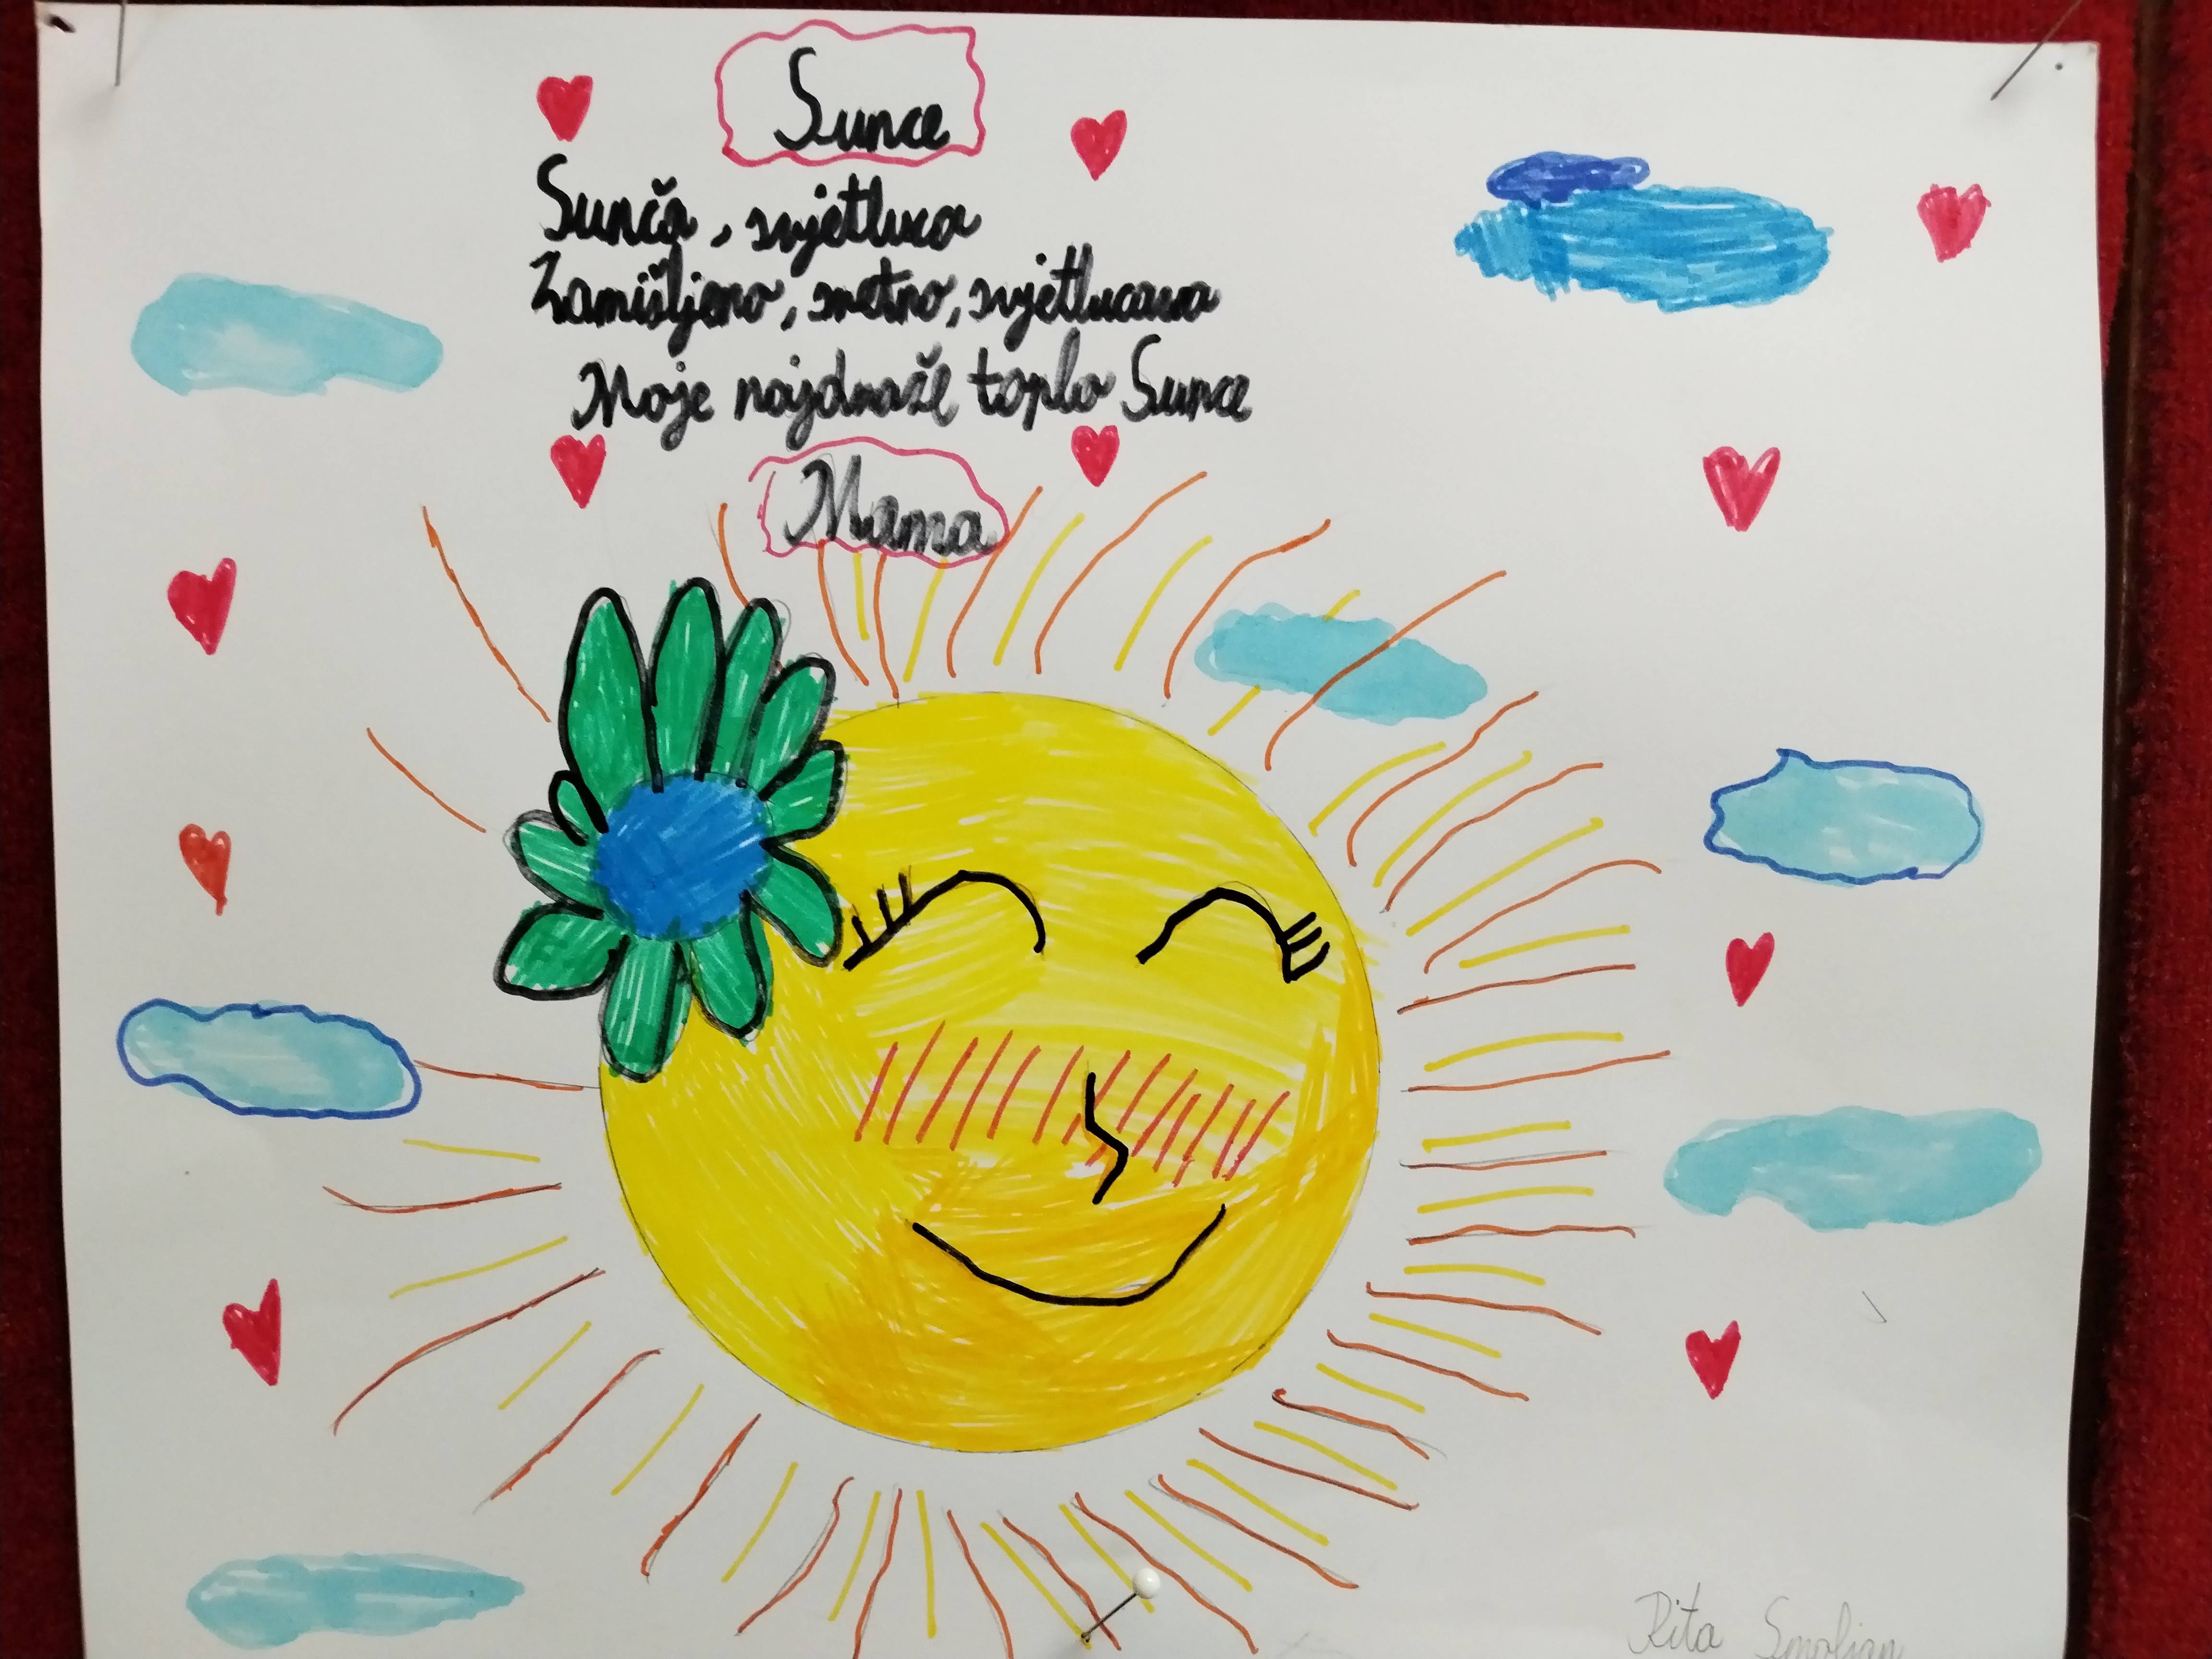 Sunce
Sunča, svjetluca
Zamišljeno, sretno, svjetlucavo
Moje najdraže toplo Sunce
Mama
Rita Smoljan